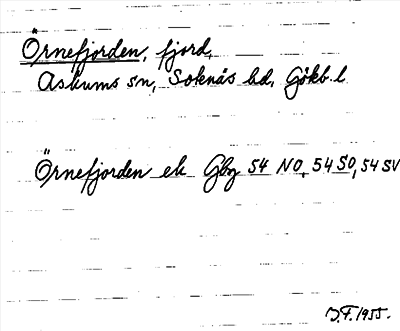 Örnefjorden, fjord,
Askums sn, Sotenäs hd, Gökb. l.
Örnefjorden ek Gbg 54 NO, 54 SO, 54 SV
D.F. 1955.